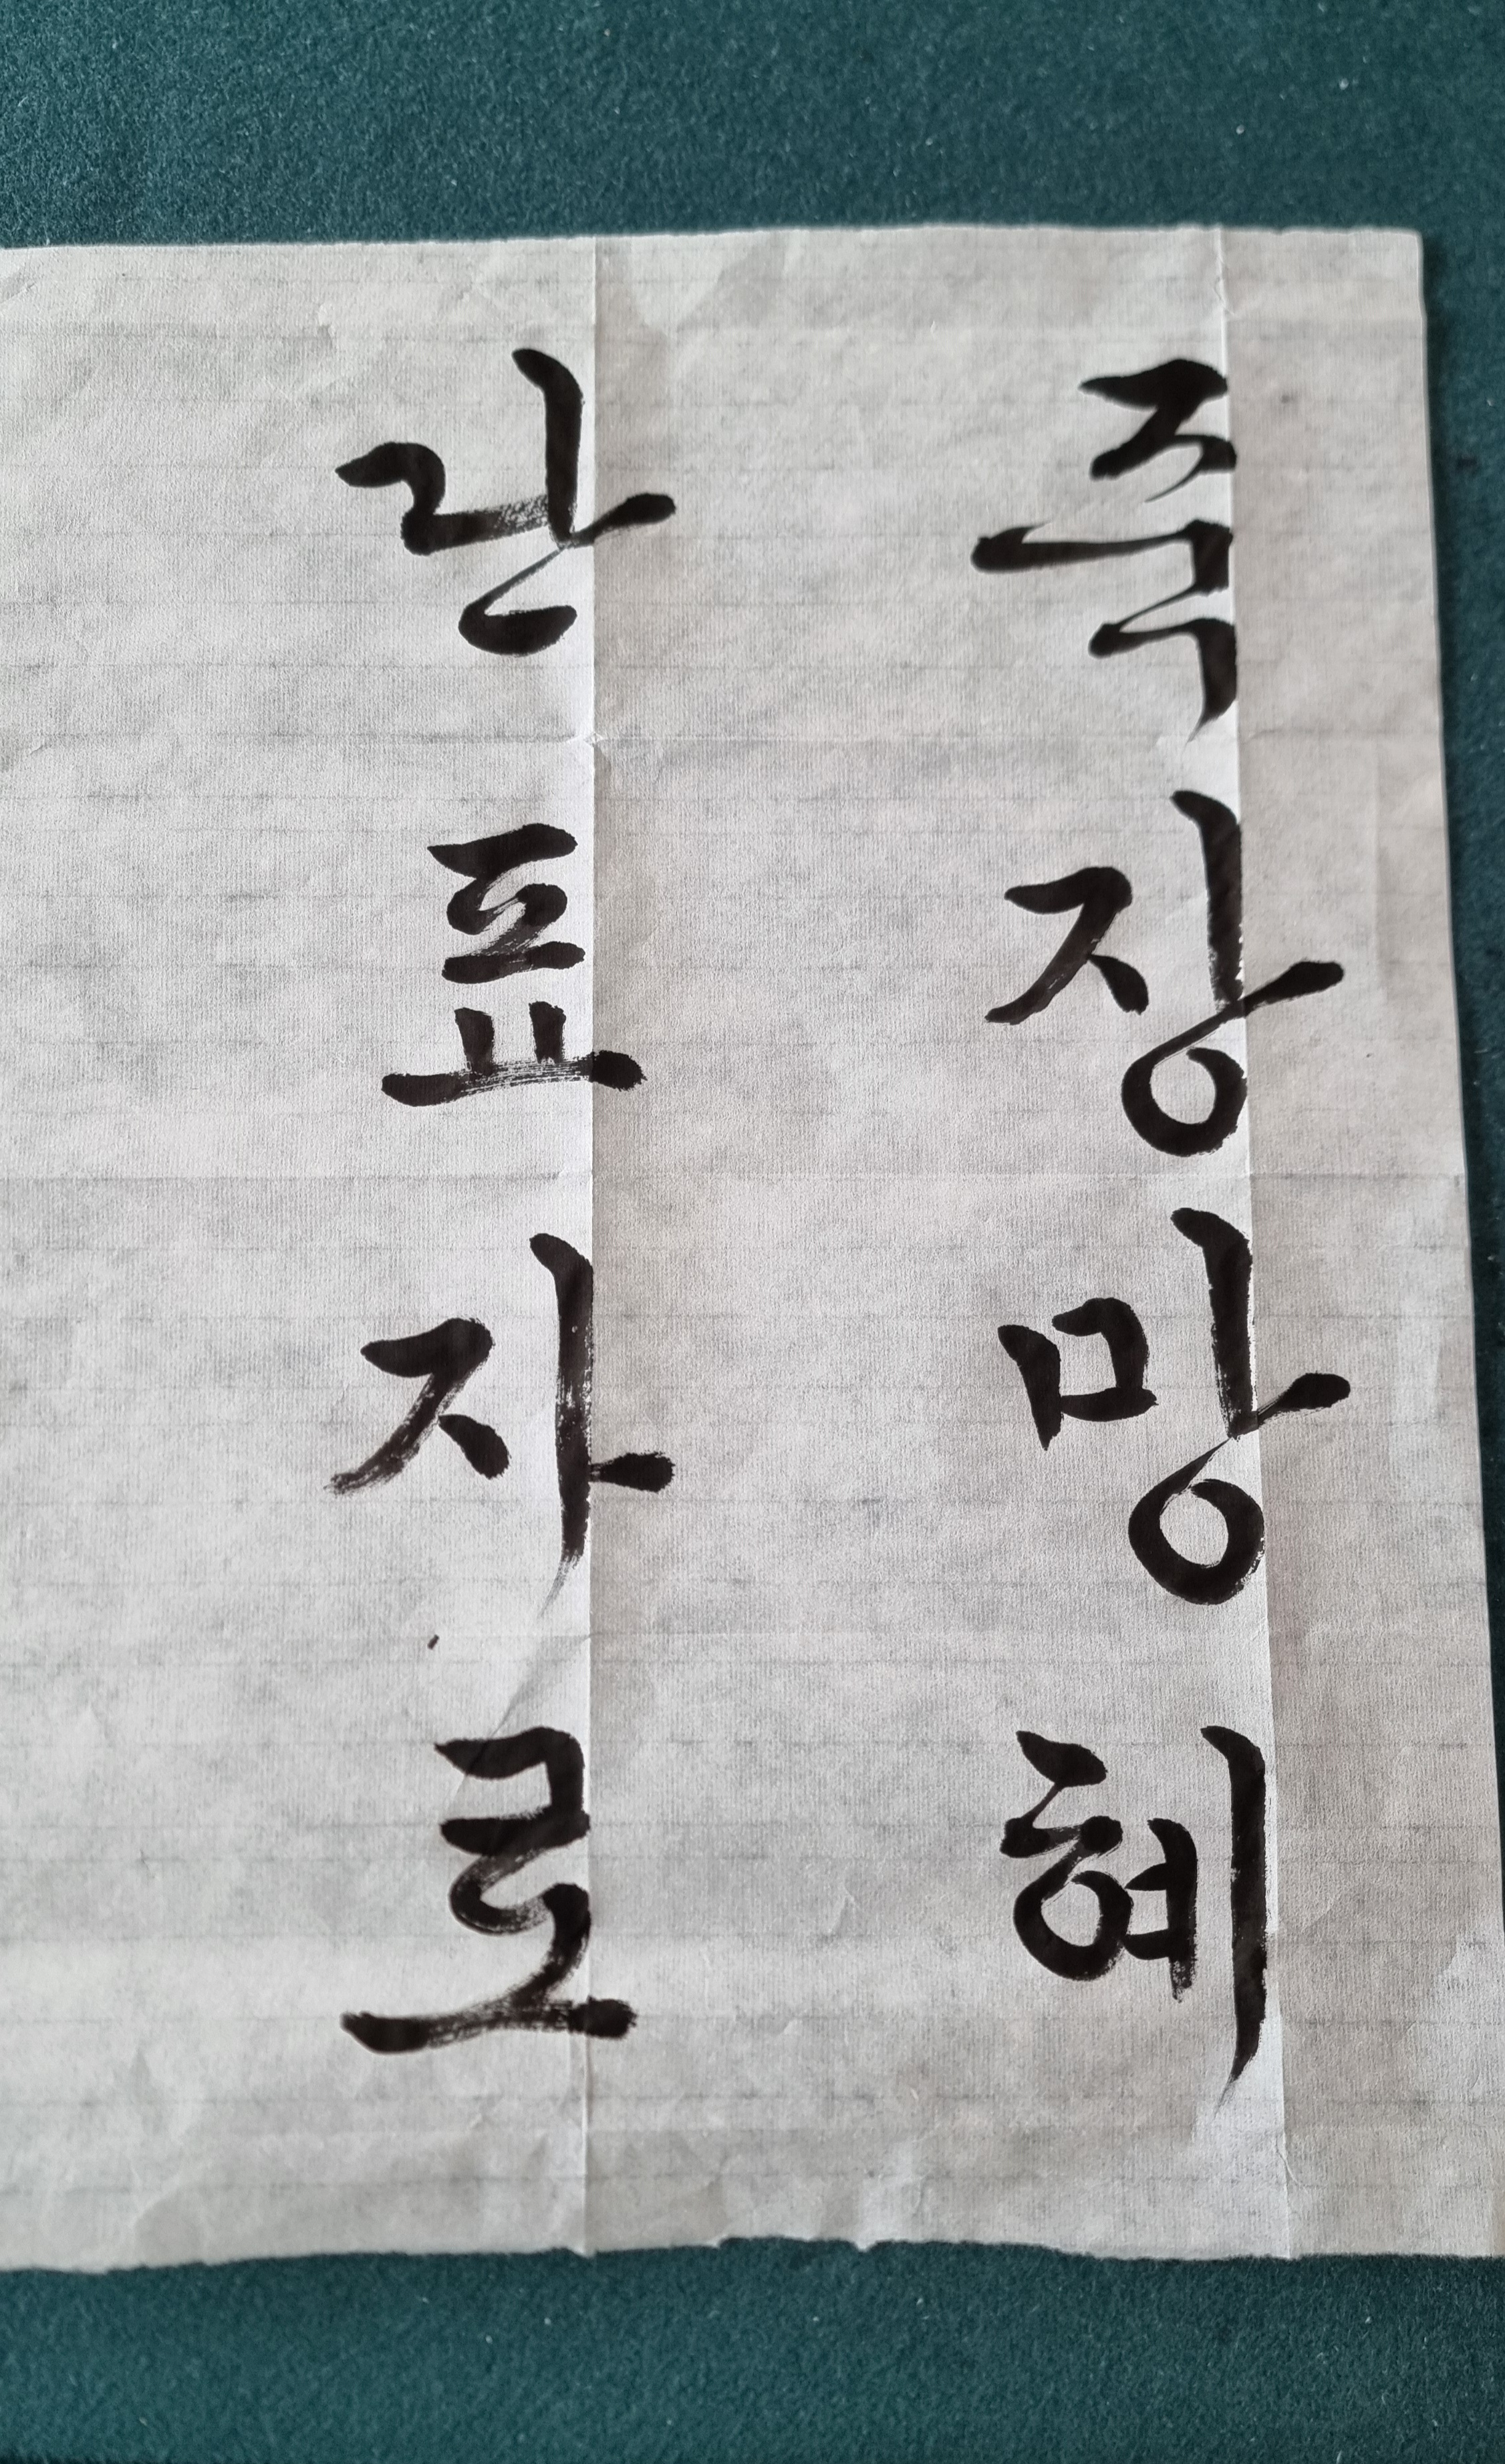 죽장망혜
단표자로